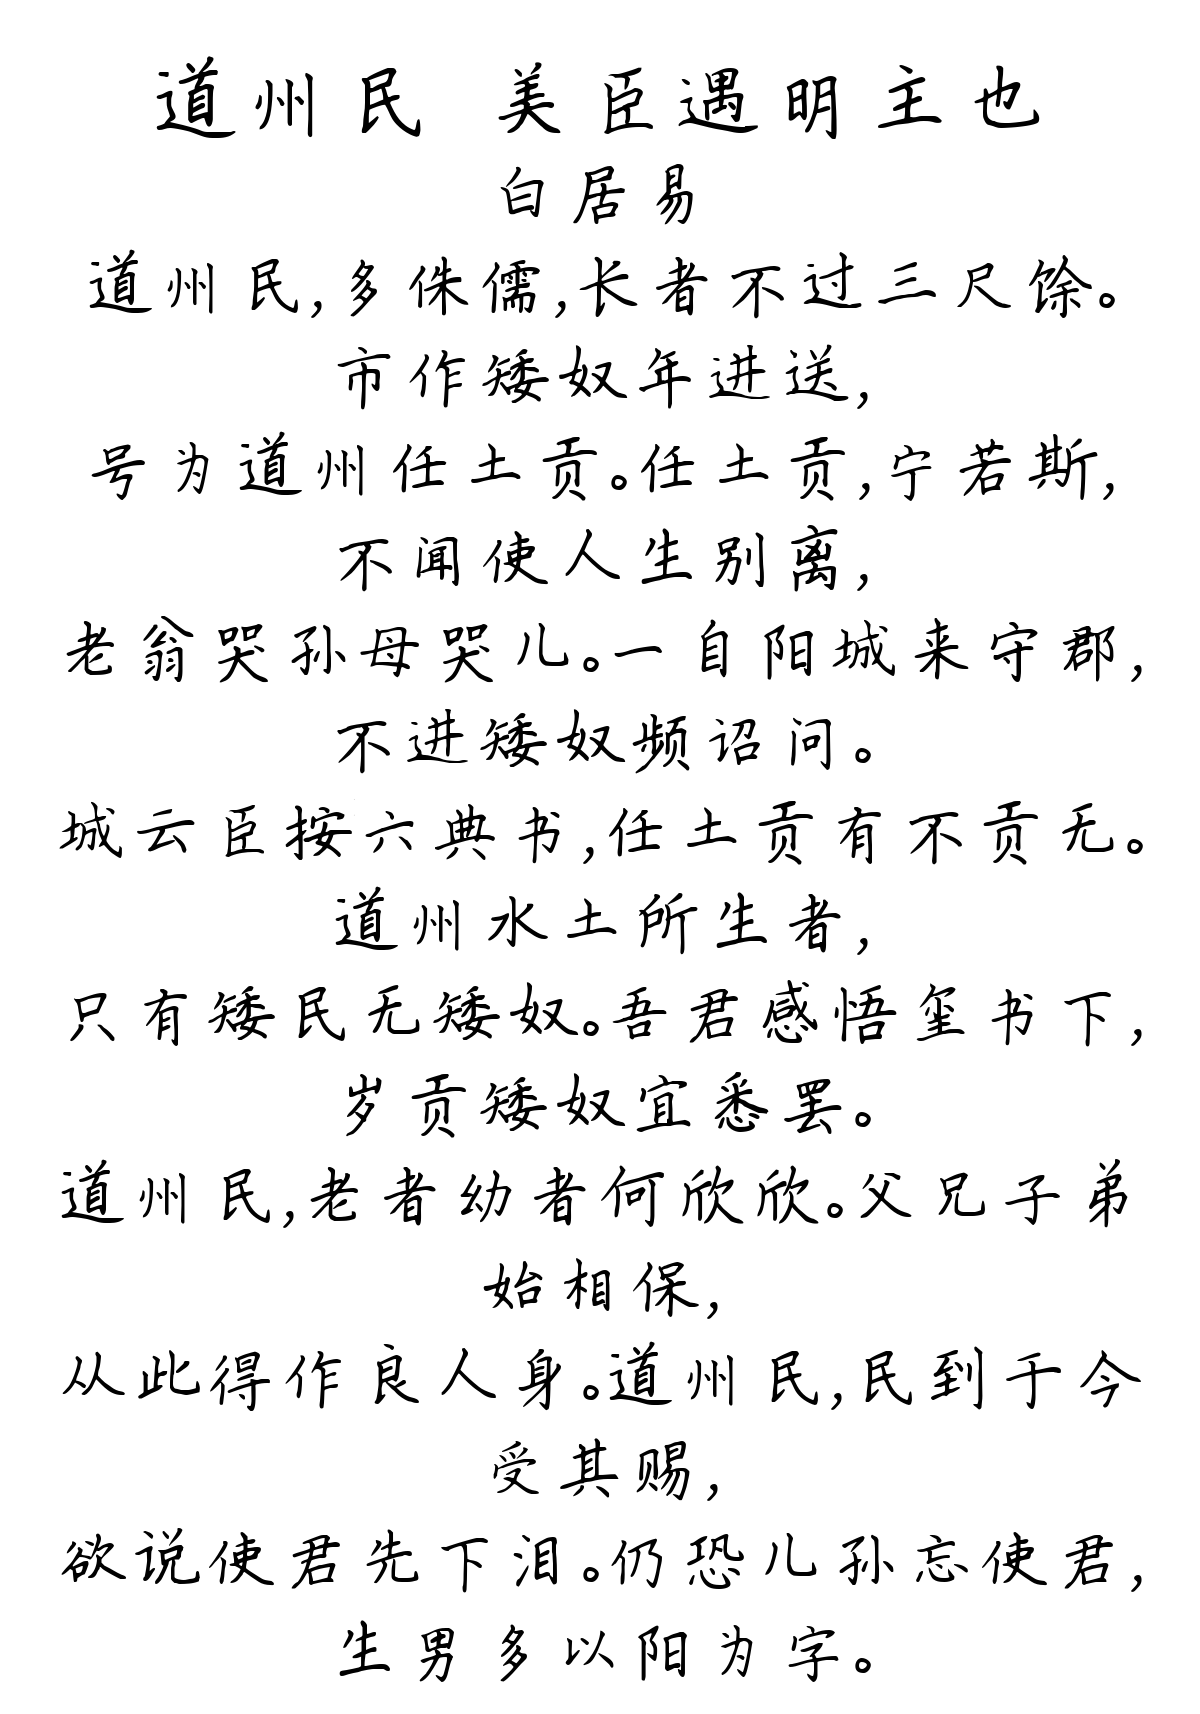 道州民 美臣遇明主也
白居易
道州民,多侏儒,长者不过三尺馀。
市作矮奴年进送,
号为道州任土贡。任土贡,宁若斯,
不闻使人生别离,
老翁哭孙母哭儿。一自阳城来守郡,
不进矮奴频诏问。
城云臣按六典书,任土贡有不贡无。
道州水土所生者,
只有矮民无矮奴。吾君感悟玺书下,
岁贡矮奴宜悉罢。
道州民,老者幼者何欣欣。父兄子弟
始相保,
从此得作良人身。道州民,民到于今
受其赐,
欲说使君先下泪。仍恐儿孙忘使君,
生男多以阳为字。